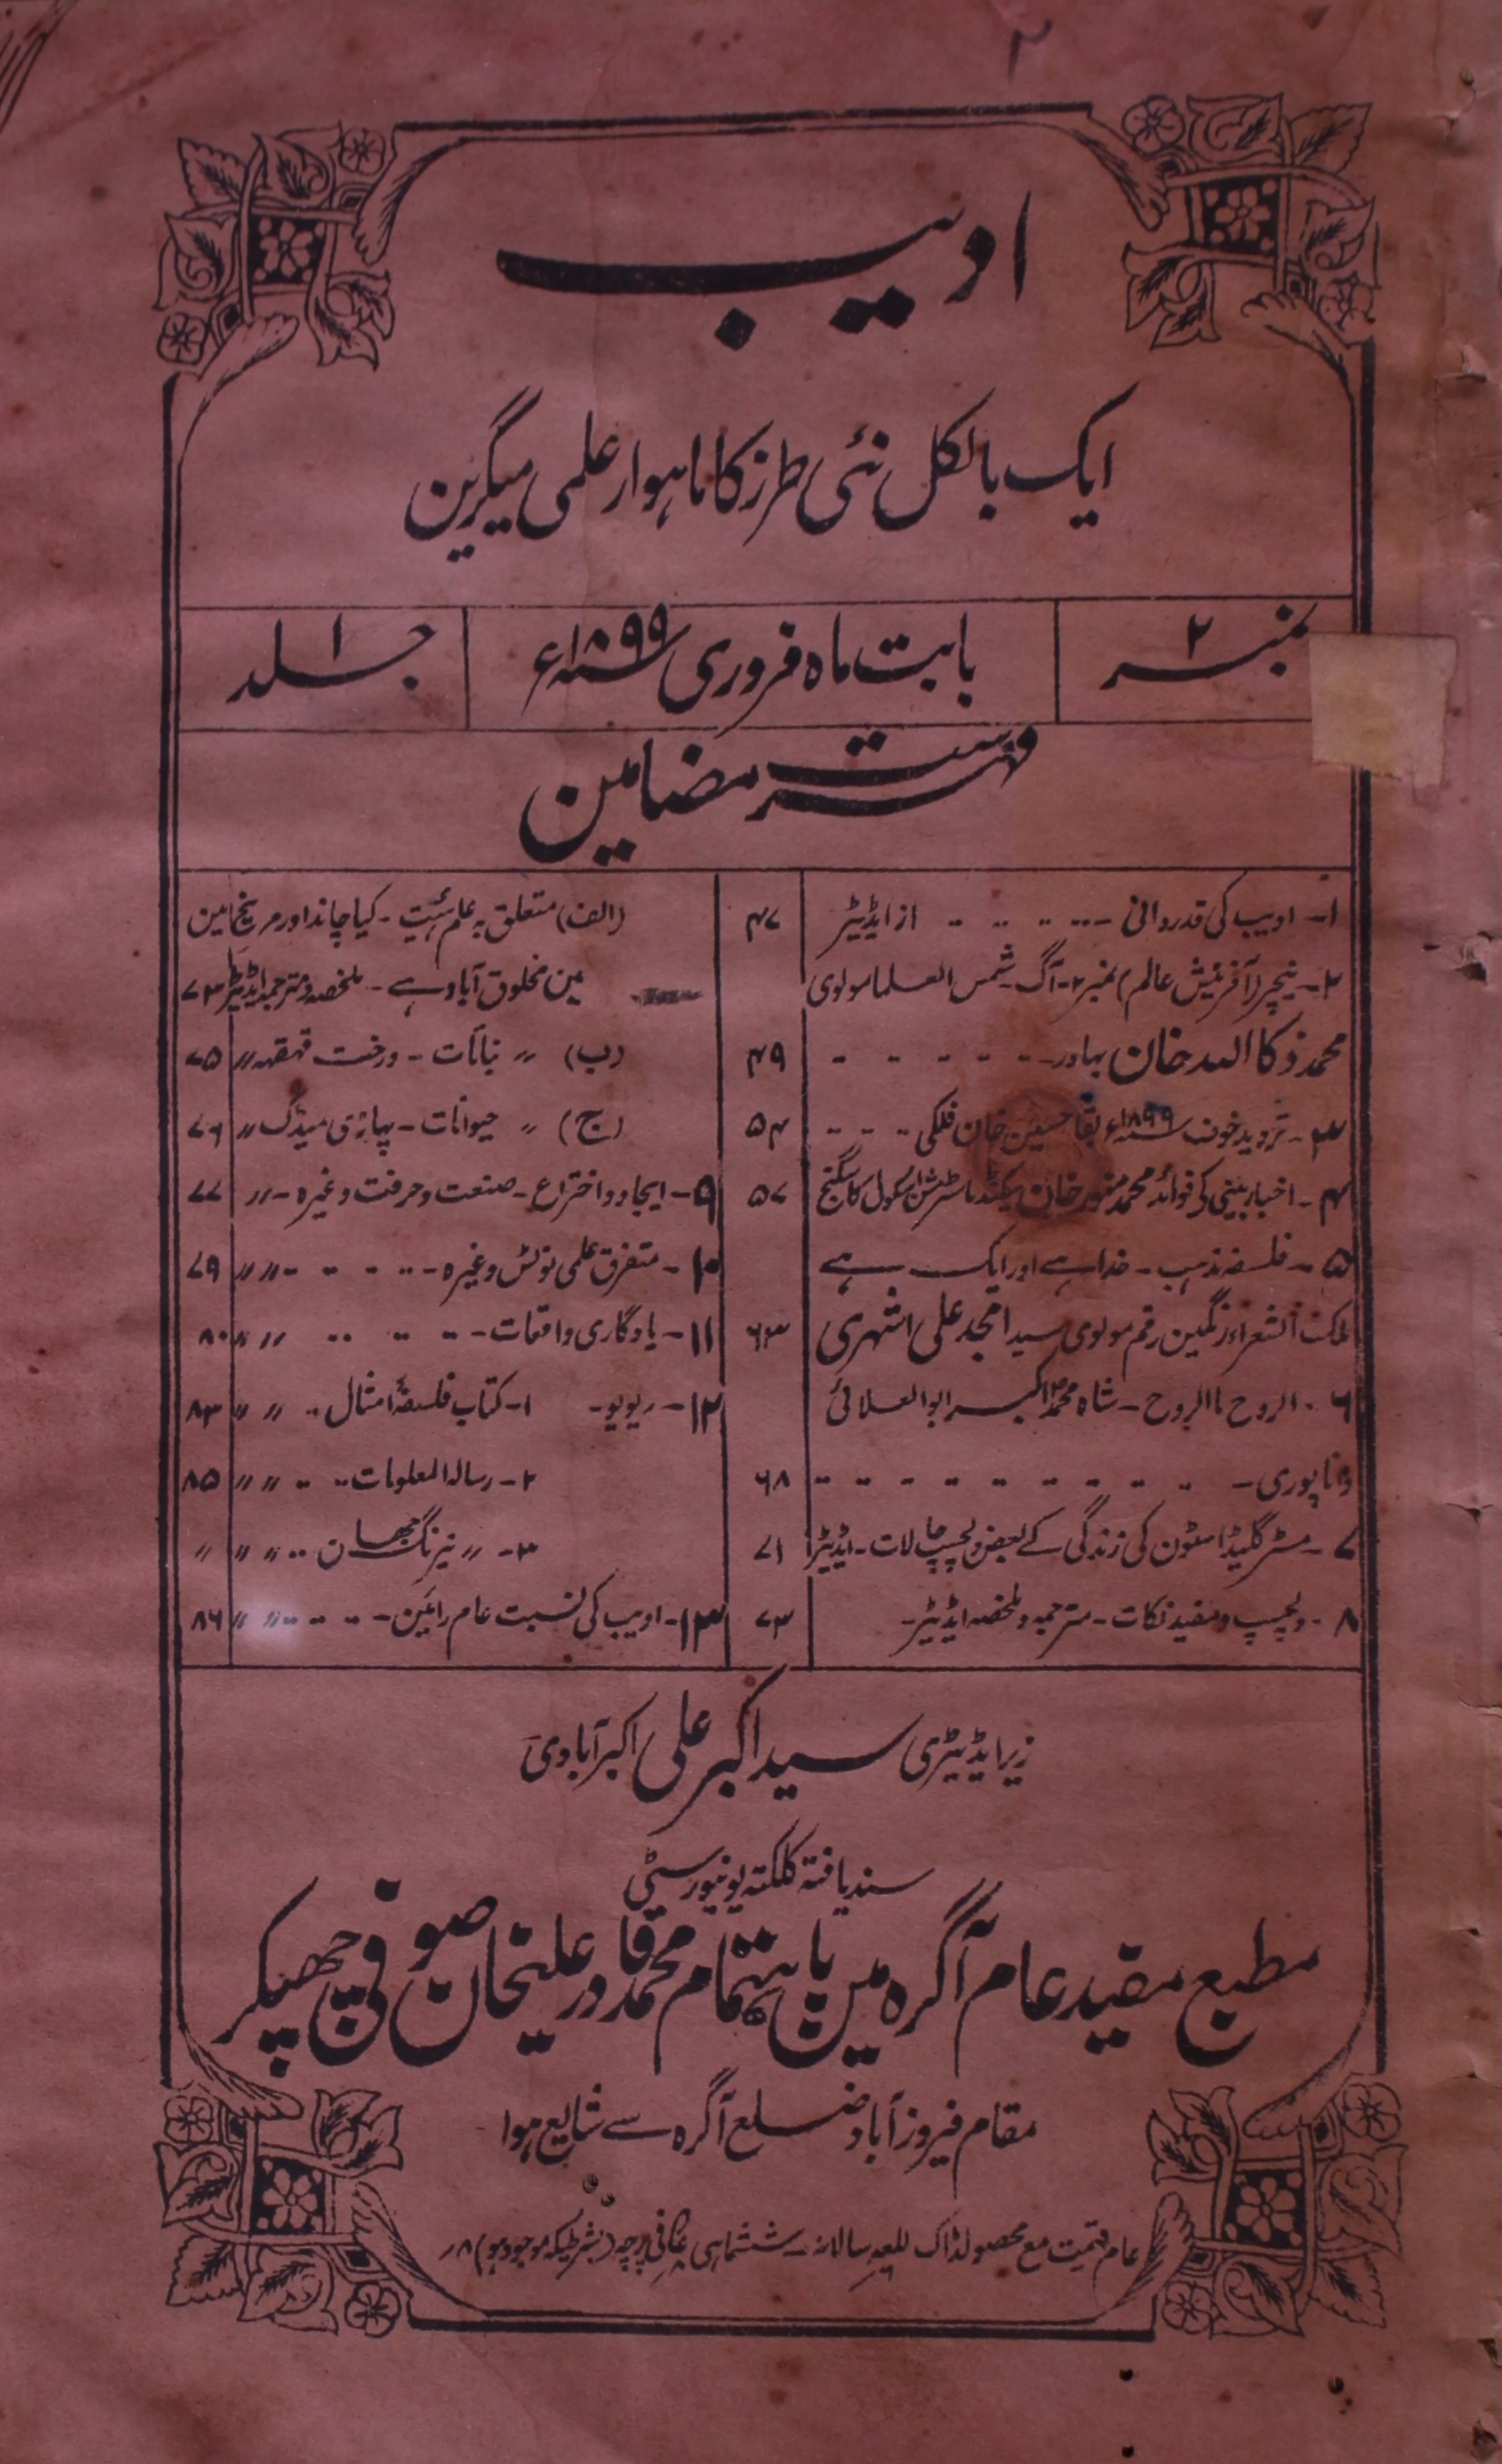 ۲
ادیب
ایک بالکل نئی طرز کا ماہوار علمی میگزین
نمبر ۲
بابت ماہ فروری سنہ ۱۸۹۹ء
جلد ۱
فہرست مضامین
۱- ادیب کی قدردانی - از ایڈیٹر ۴۷
۲- نیچر (آفرینش عالم) نمبر ۲- آگ - شمس العلما مولوی
محمد ذکاالله خان بہادر - ۴۹
۳- تردید خوف سنہ ۱۸۹۹ء بقا حسین خان فلکی ۵۴
۴- اخبار بینی کی فوائد محمد منور خان سیکنڈ ماسٹر مشن اسکول کاسگنج ۵۷
۵- فلسفہ مذہب - خدا ہے اور ایک ہے
ملک الشعراء رنگین رقم مولوی سید امجد علی اشہری ۶۳
۶- الروح ما الروح - شاہ محمد اکبر ابوالعلائی
داناپوری - ۶۸
۷- مسٹر گلیڈ اسٹون کی زندگی کے بعض دلچسپ حالات - ایڈیٹر ۷۱
۸- دلچسپ و مفید نکات - مترجمہ و ملخصہ ایڈیٹر - ۷۳
(الف) متعلق بہ علم ہئیت - کیا چاند اور مریخ مین
مین مخلوق آباد ہے - ملخصہ و مترجمہ ایڈیٹر ۷۳
(ب) 〃 نباتات - درخت قہقہہ 〃 ۷۵
(ج) 〃 حیوانات - پہاڑی میڈک 〃 ۷۶
۹- ایجاد و اختراع - صنعت و حرفت وغیرہ - 〃 ۷۷
۱۰- متفرق علمی نوٹس وغیرہ - 〃 〃 ۷۹
۱۱- یادگاری واقعات - 〃 〃 ۸۰
۱۲- ریویو - ۱- کتاب فلسفۂ امثال 〃 〃 ۸۳
۲- رسالہ المعلومات 〃 〃 ۸۵
۳- 〃 نیرنگ جہان 〃 〃 〃
۱۳- ادیب کی نسبت عام رائین - 〃 〃 ۸۶
زیر ایڈیٹری سید اکبر علی اکبرآبادی
سند یافتہ کلکتہ یونیورسیٹی
مطبع مفید عام آگرہ میں باہتمام محمد قادر علیخان صوفی چھپکر
مقام فیروزآباد ضلع آگرہ سے شایع ہوا
عام قیمت مع محصولڈاک سالانہ - ششماہی فی پرچہ (بشرطیکہ موجود ہو) ۸؍